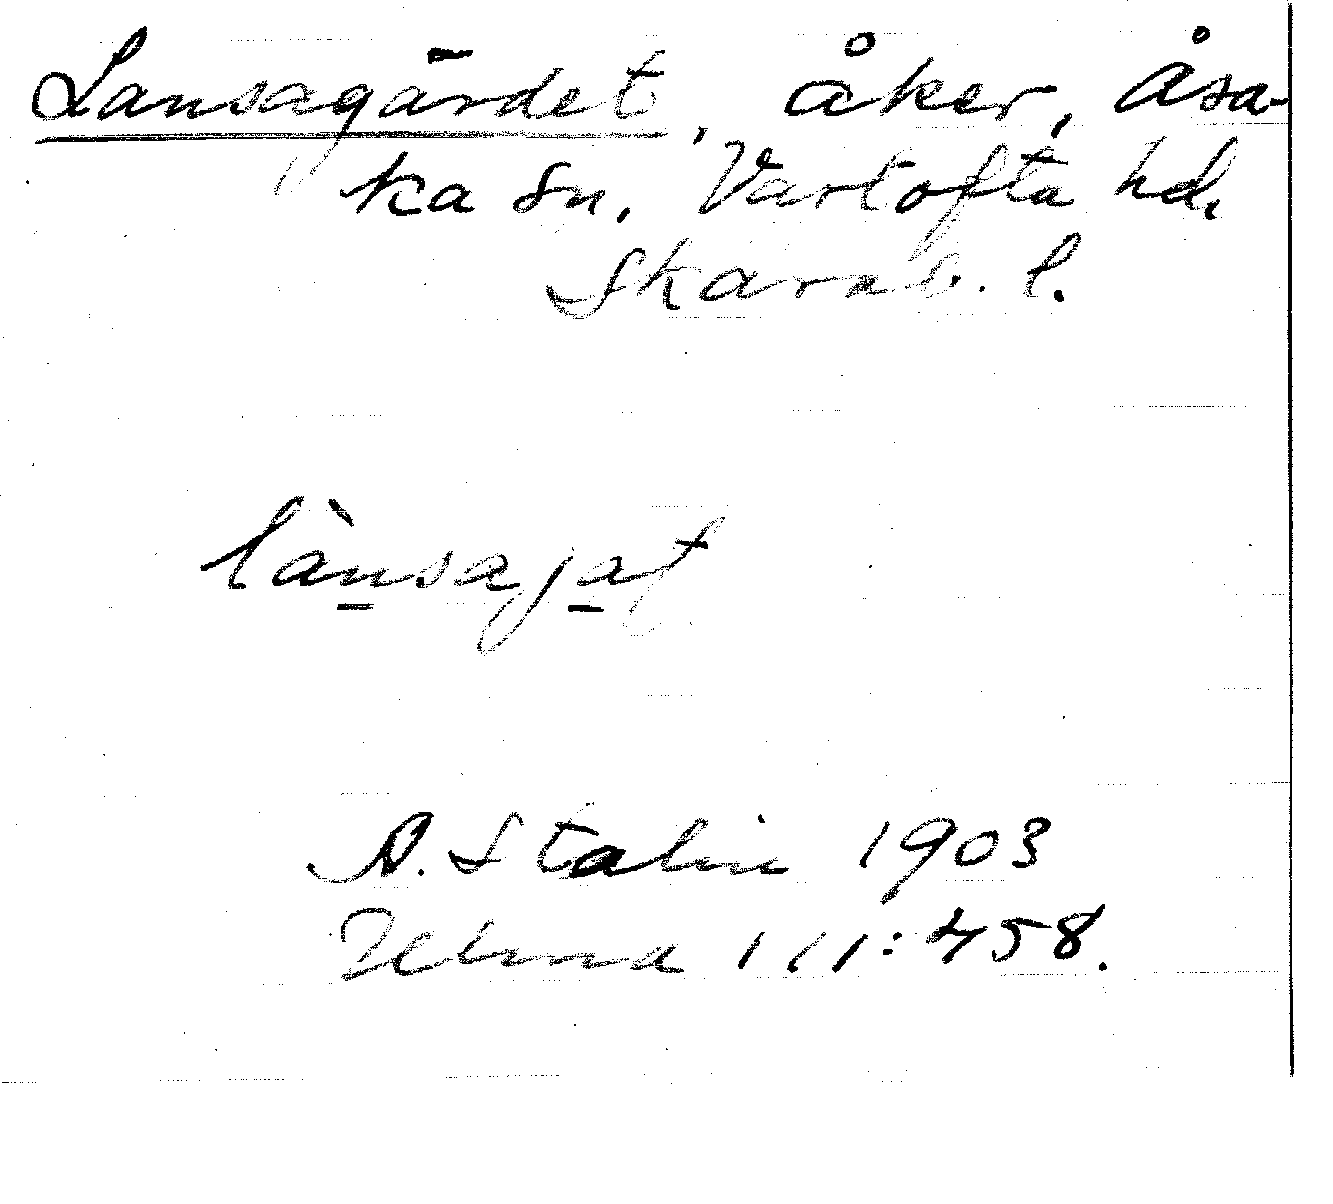 Lansagärdet, åker, Åsa-
ka sn. Vartofta hd,
Skarab. l.
lànsajat
A. Stalin 1903
111:458.